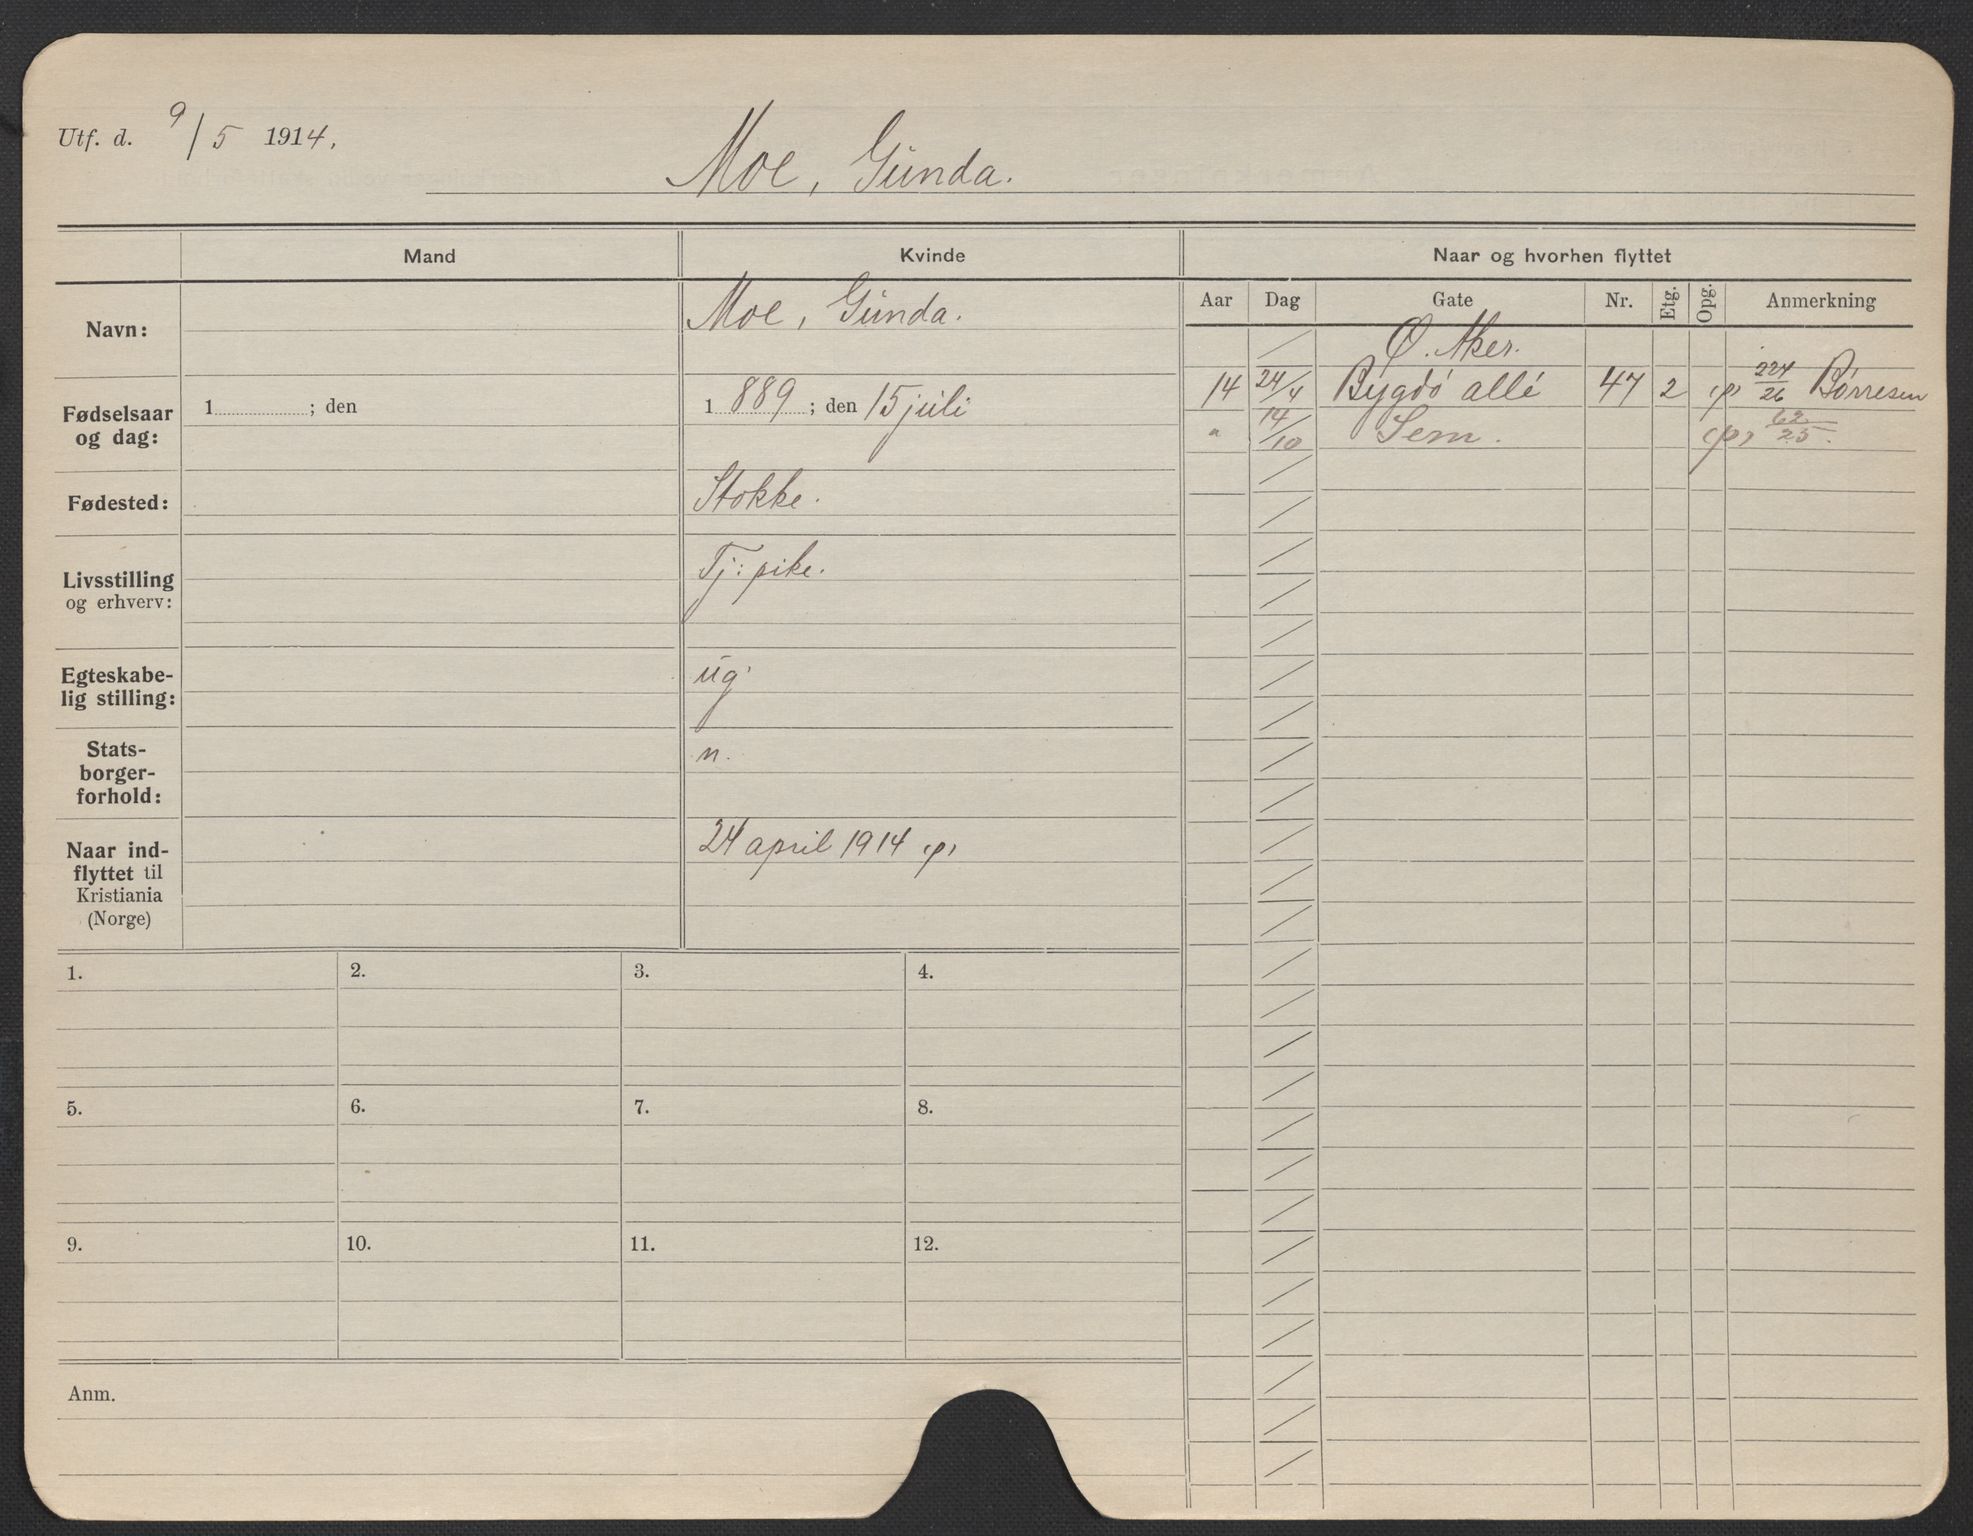 Utf. d. 9/5 1914,
Moe, Gunda.
Mand
Kvinde
Naar og hvorhen flyttet
Navn:
Moe, Gunda.
Fødselsaar
og dag:
1 ; den
1 889 ; den 15 juli
Fødested:
Stokke.
Livsstilling
og erhverv:
Tj: pike.
Egteskabe-
lig stilling:
ug.
Stats-
borger-
forhold:
n.
Naar ind-
flyttet til
Kristiania
(Norge)
24 april 1914 (p)
Aar Dag Gate Nr. Etg. Opg. Anmerkning
Ø. Aker.
14 24/4 Bygdö allé 47 2 (p) 224/26 Börresen
" 14/10 Sem. (p) 62/25.
1. 2. 3. 4.
5. 6. 7. 8.
9. 10. 11. 12.
Anm.